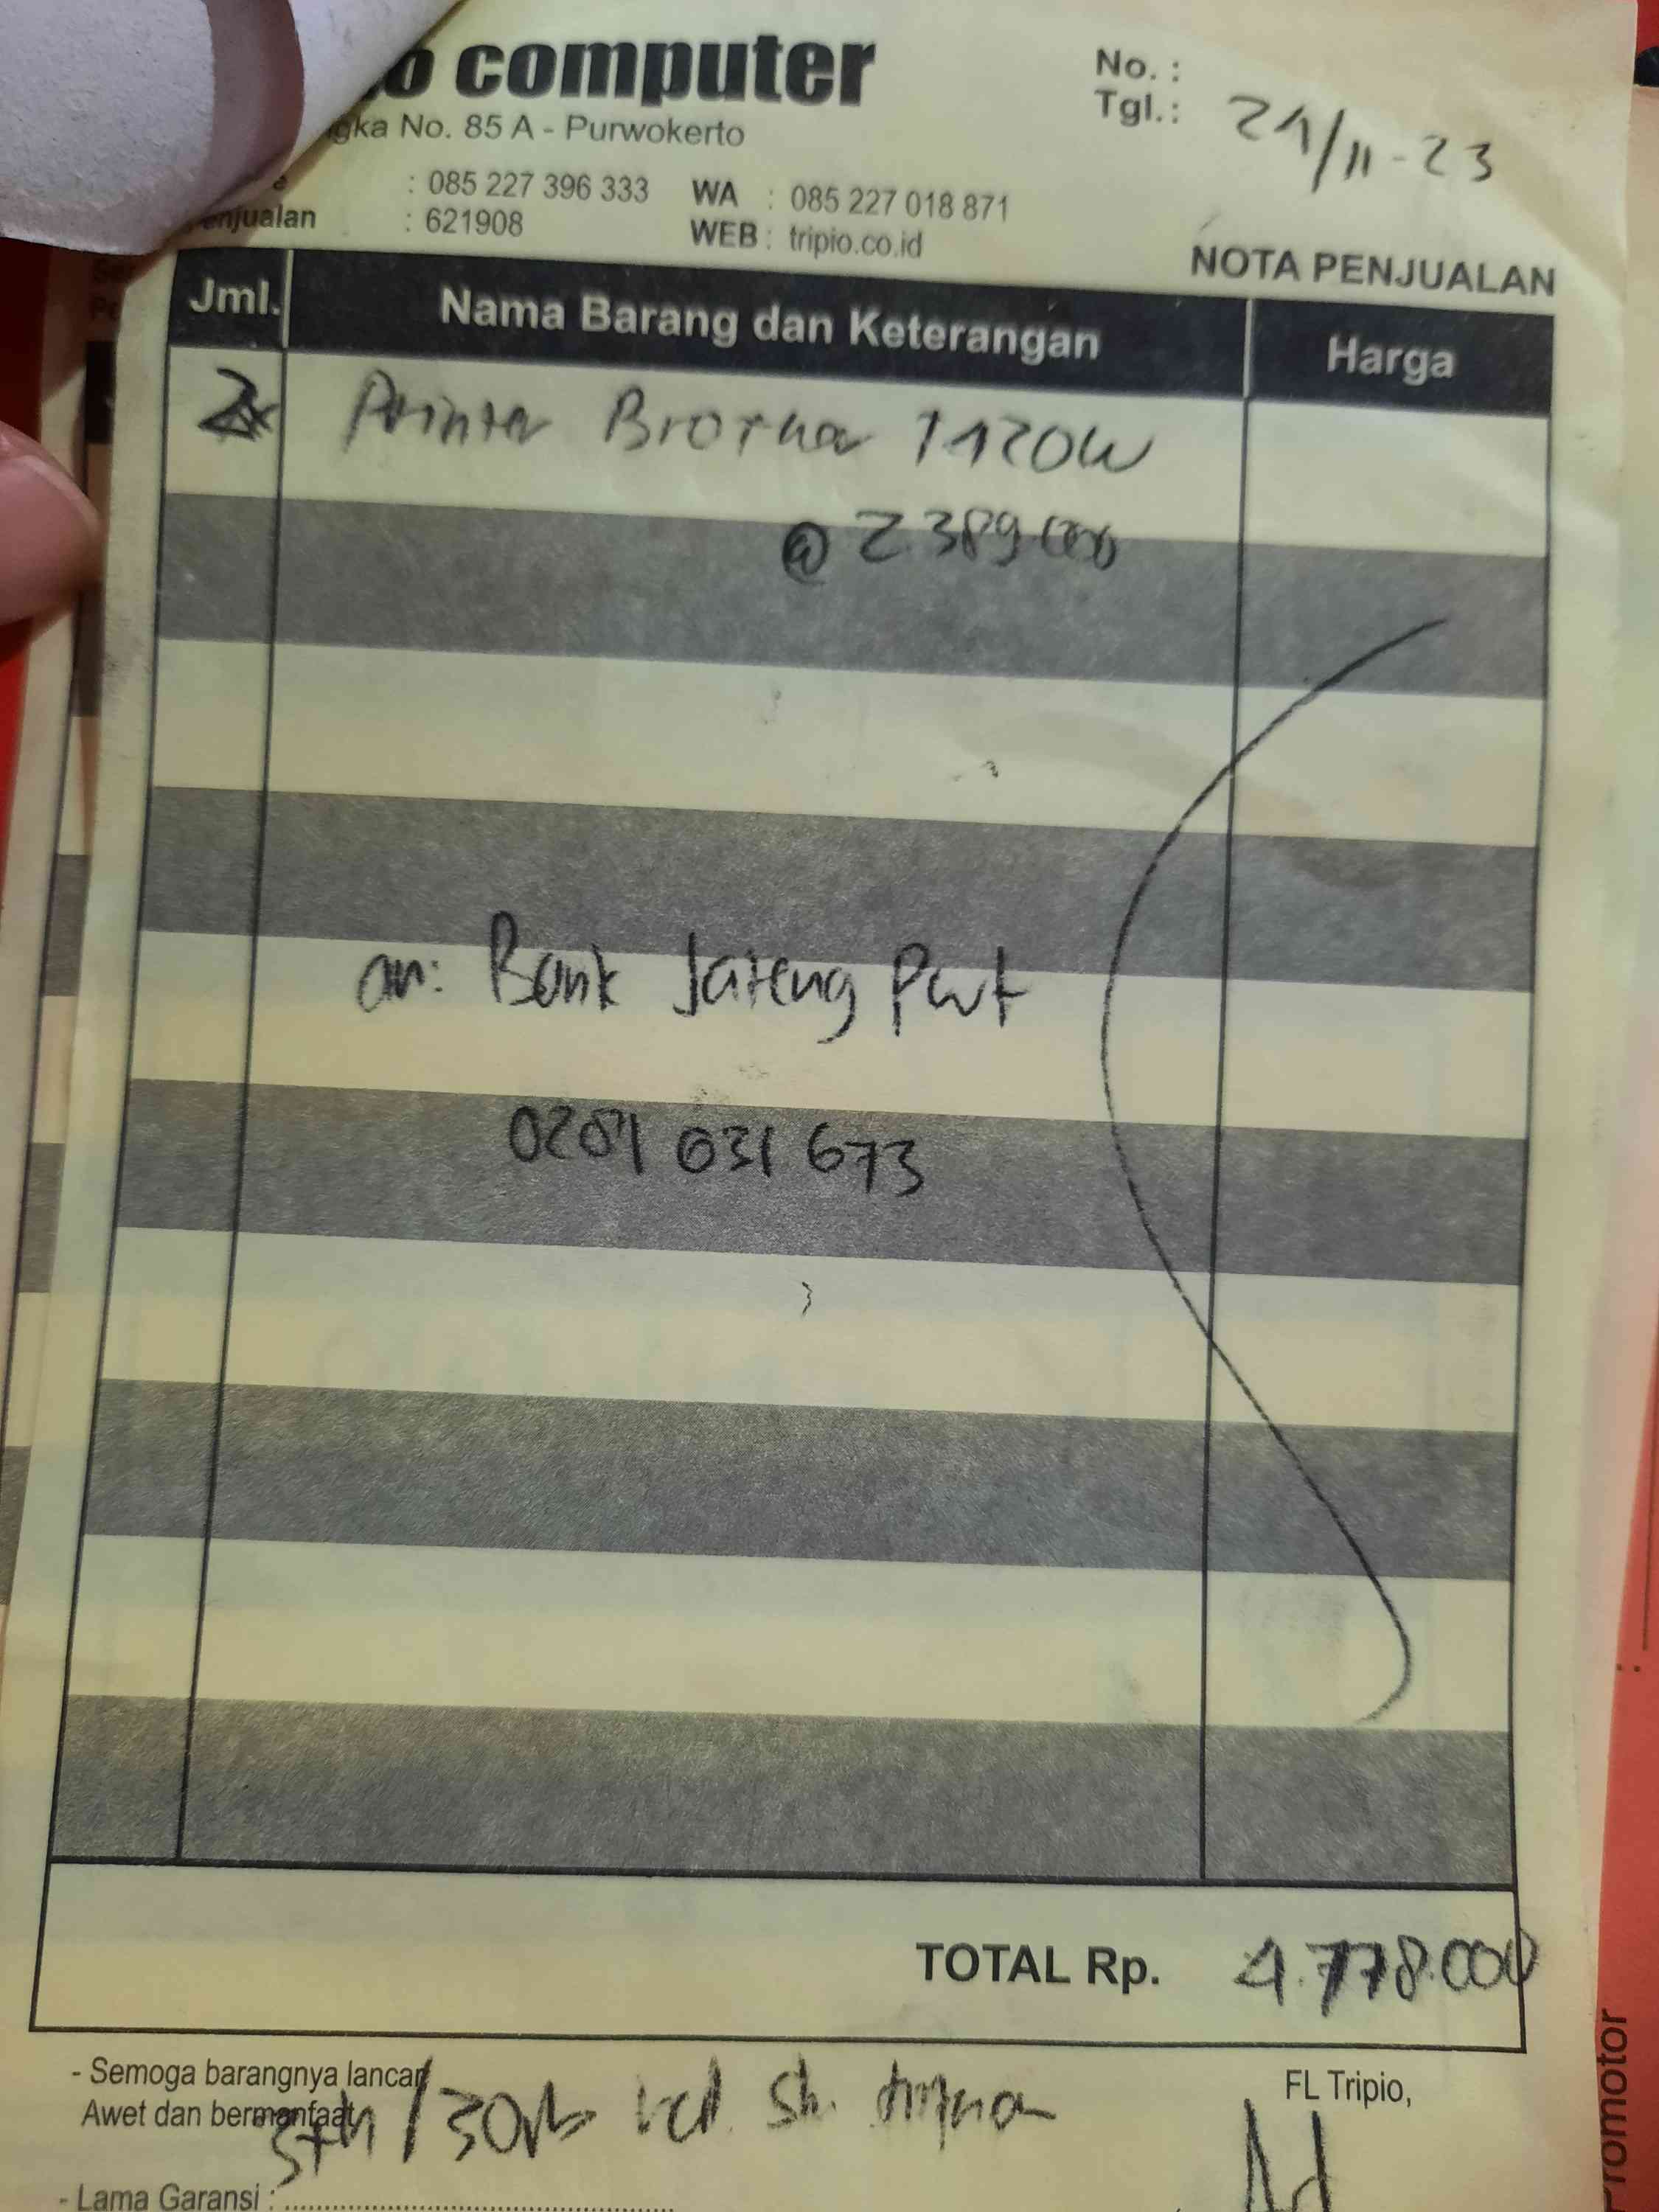 computer
No. 85 A - Purwokerto
No. :
Tgl. : 21/11-23
: 085 227 396 333 WA : 085 227 018 871
: 621908 WEB : tripio.co.id
NOTA PENJUALAN
Jml. Nama Barang dan Keterangan Harga
2x Printer Brother T420W
@ 2.389.000
an: Bank Jateng Pwt
031 673
TOTAL Rp. 4.778.000
- Semoga barangnya lancar
Awet dan bermanfaat
3th / 30rb
FL Tripio,
- Lama Garansi :
Promotor